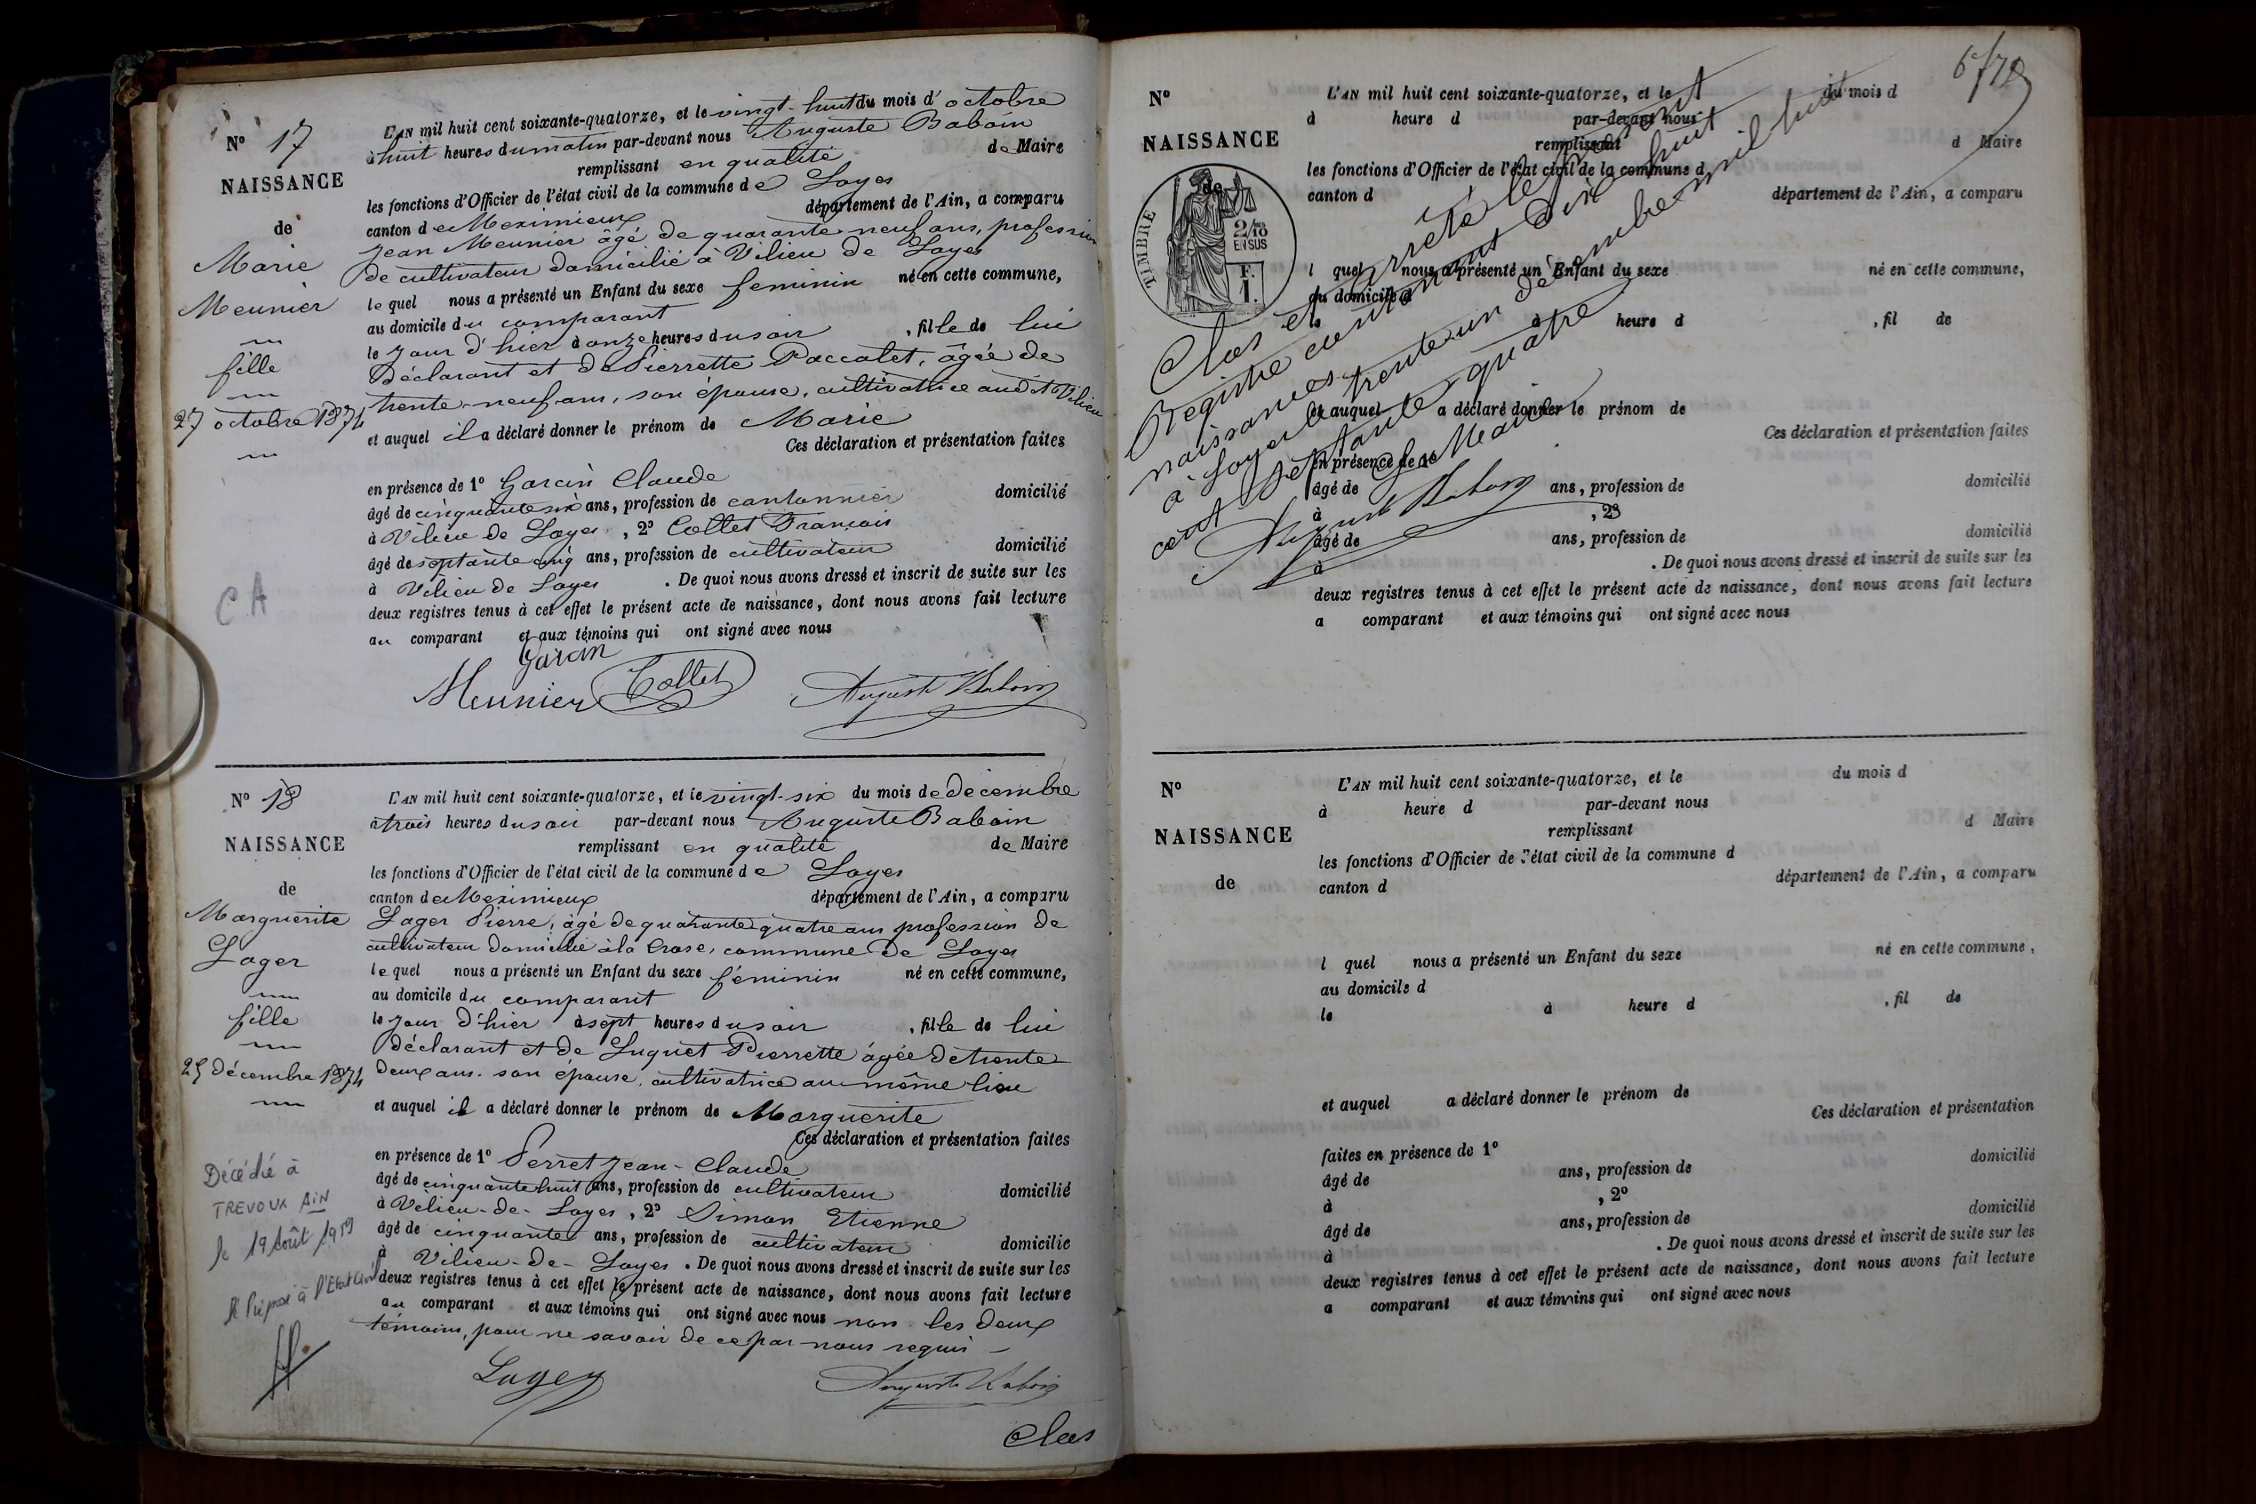 N° 17
NAISSANCE
de
Marie
Meunier
fille
27 octobre 1874
CA
L'AN mil huit cent soixante-quatorze, et le vingt-huit du mois d'octobre
à huit heures du matin par-devant nous Auguste Baboin
remplissant en qualité de Maire
les fonctions d'Officier de l'état civil de la commune de Loyes
canton de Meximieux département de l'Ain, a comparu
Jean Meunier âgé de quarante neuf ans, profession
de cultivateur domicilié à Vilieu de Loyes
lequel nous a présenté un Enfant du sexe féminin né en cette commune,
au domicile du comparant
le jour d'hier à onze heures du soir, fille de lui
Déclarant et de Pierrette Paccalet, âgée de
trente-neuf ans, son épouse, cultivatrice audit Vilieu
et auquel il a déclaré donner le prénom de Marie
Ces déclaration et présentation faites
en présence de 1° Garcin Claude
âgé de cinquante six ans, profession de cantonnier domicilié
à Vilieu de Loyes, 2° Collet François
âgé de septante cinq ans, profession de cultivateur domicilié
à Vilieu de Loyes. De quoi nous avons dressé et inscrit de suite sur les
deux registres tenus à cet effet le présent acte de naissance, dont nous avons fait lecture
au comparant et aux témoins qui ont signé avec nous
Garcin
Meunier Collet Auguste Baboin
N° 18
NAISSANCE
de
Marguerite
Lager
fille
25 décembre 1874
Décédée à
TREVOUX AIN
le 19 Août 1959
L'AN mil huit cent soixante-quatorze, et le vingt-six du mois de décembre
à trois heures du soir par-devant nous Auguste Baboin
remplissant en qualité de Maire
les fonctions d'Officier de l'état civil de la commune de Loyes
canton de Meximieux département de l'Ain, a comparu
Lager Pierre, âgé de quarante quatre ans profession de
cultivateur domicilié à la Crose, commune de Loyes
lequel nous a présenté un Enfant du sexe féminin né en cette commune,
au domicile du comparant
le jour d'hier à sept heures du soir, fille de lui
déclarant et de Luquet Pierrette âgée de trente
deux ans. son épouse, cultivatrice au même lieu
et auquel il a déclaré donner le prénom de Marguerite
Ces déclaration et présentation faites
en présence de 1° Perret Jean-Claude
âgé de cinquante huit ans, profession de cultivateur domicilié
à Vilieu-de-Loyes, 2° Simon Etienne
âgé de cinquante ans, profession de cultivateur domicilié
à Vilieu-de-Loyes. De quoi nous avons dressé et inscrit de suite sur les
deux registres tenus à cet effet le présent acte de naissance, dont nous avons fait lecture
au comparant et aux témoins qui ont signé avec nous non les deux
témoins, pour ne savoir de ce par nous requis
Lager Auguste Baboin
Clos
N°
NAISSANCE
de
TIMBRE
2/10
EN SUS
F.
1.
L'AN mil huit cent soixante-quatorze, et le du mois d
à heure d par-devant nous
remplissant d Maire
les fonctions d'Officier de l'état civil de la commune d
canton d département de l'Ain, a comparu
l quel nous a présenté un Enfant du sexe né en cette commune,
au domicile d
le à heure d , fil de
et auquel a déclaré donner le prénom de
Ces déclaration et présentation faites
en présence de 1°
âgé de ans, profession de domicilié
à , 2°
âgé de ans, profession de domicilié
à . De quoi nous avons dressé et inscrit de suite sur les
deux registres tenus à cet effet le présent acte de naissance, dont nous avons fait lecture
a comparant et aux témoins qui ont signé avec nous
Clos et arrêté le présent
Registre contenant dix huit
naissances
à Loyes le trente un décembre mil huit
cent septante quatre
Le Maire
Auguste Baboin
N°
NAISSANCE
de
L'AN mil huit cent soixante-quatorze, et le du mois d
à heure d par-devant nous
remplissant d Maire
les fonctions d'Officier de l'état civil de la commune d
canton d département de l'Ain, a comparu
l quel nous a présenté un Enfant du sexe né en cette commune,
au domicile d
le à heure d , fil de
et auquel a déclaré donner le prénom de
Ces déclaration et présentation
faites en présence de 1°
âgé de ans, profession de domicilié
à , 2°
âgé de ans, profession de domicilié
à . De quoi nous avons dressé et inscrit de suite sur les
deux registres tenus à cet effet le présent acte de naissance, dont nous avons fait lecture
a comparant et aux témoins qui ont signé avec nous